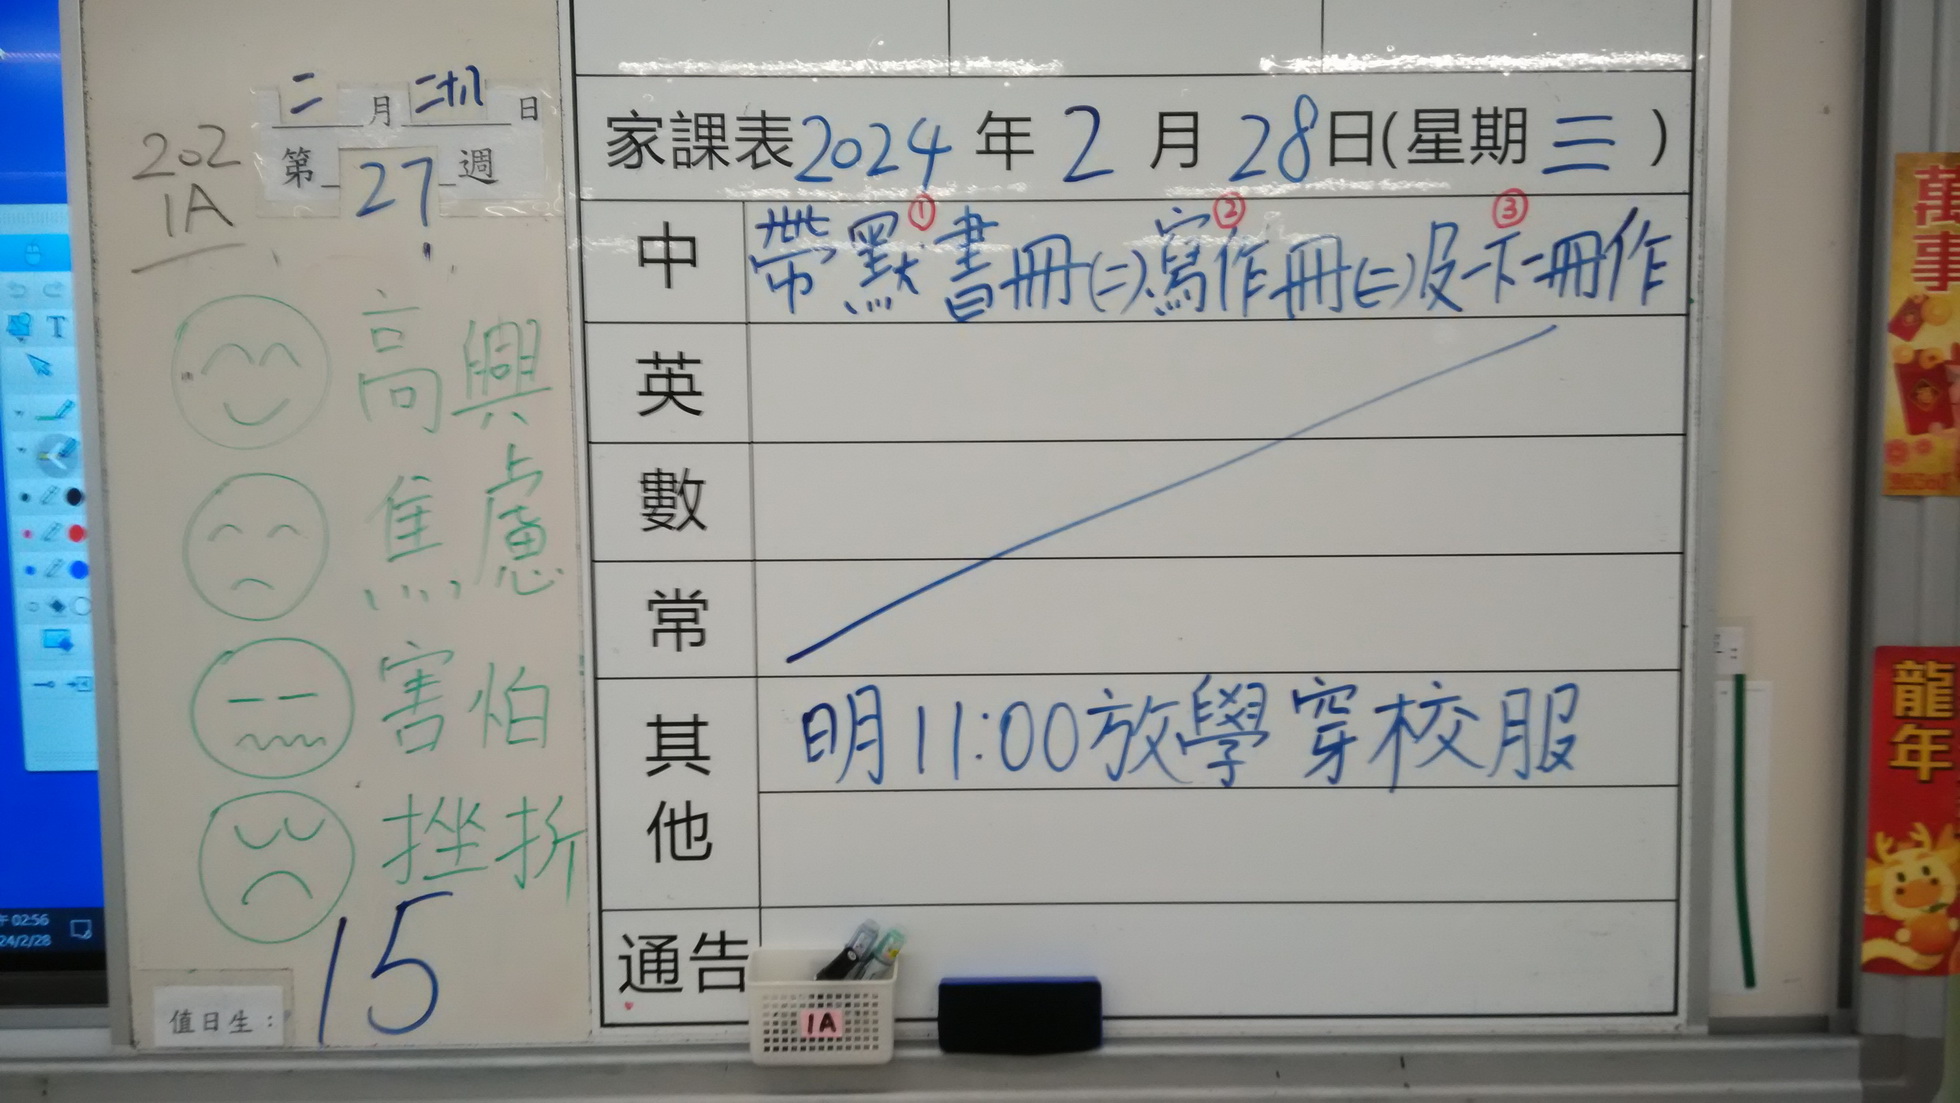 二月二十八日
第27週
202
1A
高興
焦慮
害怕
挫折
值日生：15
家課表2024年2月28日(星期三)
中 帶默書冊(二)寫作冊(二)及一下二冊作
① ② ③
英
數
常
其他 明11:00放學穿校服
通告
1A
T
午 02:56
24/2/28
萬事
龍年